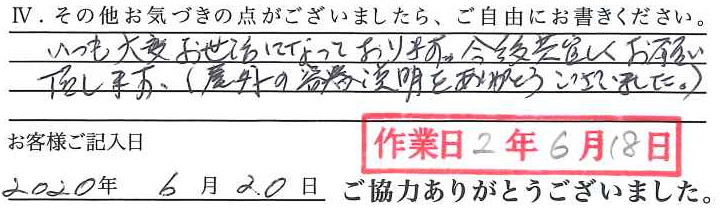 Ⅳ．その他お気づきの点がございましたら、ご自由にお書きください。
いつも大変お世話になっております。今後共宜しくお願い
致します。(屋外の説明をありがとうございました。)
お客様ご記入日
作業日2年6月18日
2020年 6月20日 ご協力ありがとうございました。